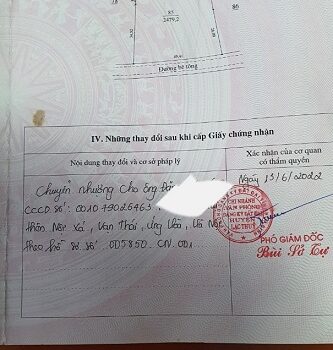 85
2479,2
80
Đường bê tông
IV. Những thay đổi sau khi cấp Giấy chứng nhận
Nội dung thay đổi và cơ sở pháp lý
Xác nhận của cơ quan
có thẩm quyền
Chuyển nhượng cho ông
CCCD số: 001049026463.
thôn Nội Xá, Vạn Thái, Ứng Hòa, Hà Nội
theo hồ sơ số: 005850. CN. 001.
Ngày 13/6/2022
CHI NHÁNH
VĂN PHÒNG
ĐĂNG KÝ ĐẤT ĐAI
HUYỆN
LẠC THỦY
PHÓ GIÁM ĐỐC
Bùi Sơ Tự